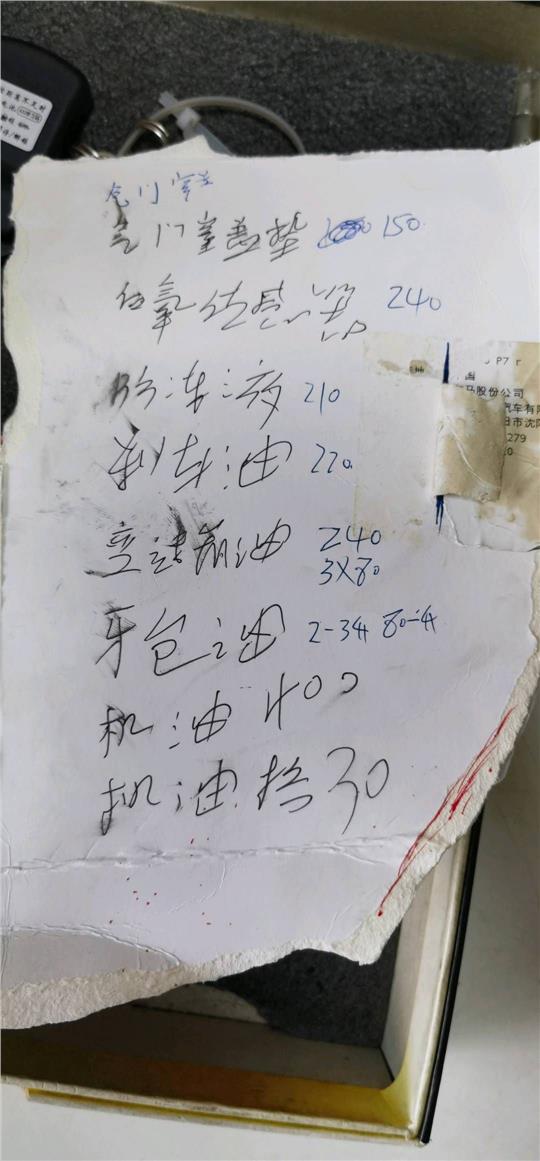 气门室盖
气门室盖垫 150
后氧传感器 240
防冻液 210
刹车油 220
变速箱油 240
3X80
牙包油 2-34 80-4
机油 400
机油格 30
P7 r
马股份公司
汽车有限
日市沈阳
279